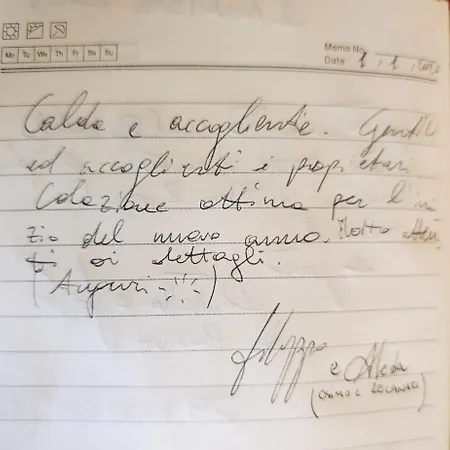 Mo Tu We Th Fr Sa Su
Memo No.
Date 1 / 1
Calda e accogliente. Gentili
ed accoglienti i proprietari
Colazione ottima per l'ini
zio del nuovo anno. Molto atten
ti ai dettagli.
(Auguri)
Filippo
e